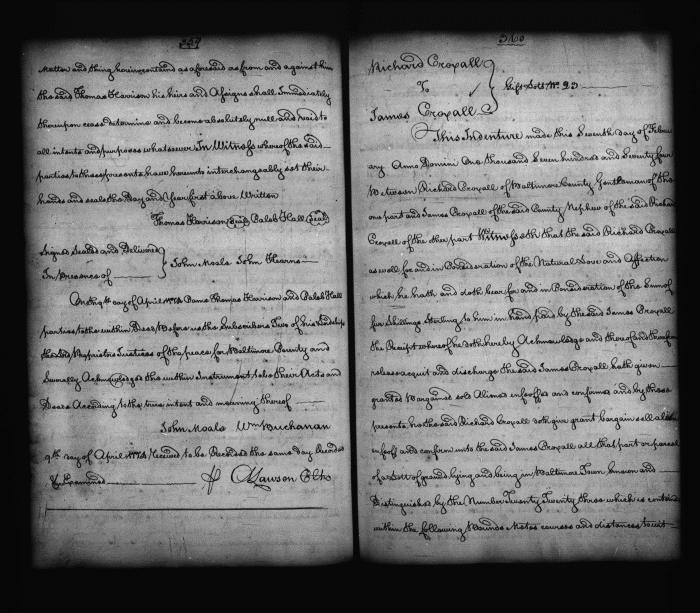 359
matter and thing herein contained as aforesaid as from and against him
the said Thomas Harrison his heirs and Assigns shall Immediately
thereupon cease determine and become absolutely null and void to
all intents and purposes whatsoever In Witness whereof the said
parties to these presents have hereunto interchangeably set their
hands and seals the Day and Year first above Written
Thomas Harrison (seal) Caleb Hall (seal)
Signed Sealed and Delivered
In Presence of John Moale John Hearns
On the 9th day of April 1774 Came Thomas Harrison and Caleb Hall
parties to the within Deed Before us the Subscribers Two of his Lordships
the Lord Proprietrs Justices of the peace for Baltimore County and
Severally Acknowledged the within Instrument to be their Acts and
Deeds According to the true intent and meaning thereof
John Moale Wm Buchanan
9th day of April 1774 Received to be Recorded the same day Recorded
& Examined A Lawson Clk
360
Richard Croxall
To
James Croxall
Gift Lott No. 23
This Indenture made this Seventh day of Febru
ary Anno Domini One thousand Seven hundred and Seventy four
Between Richard Croxall of Baltimore County Gentleman of the
one part and James Croxall of the said County Nephew of the said Richard
Croxall of the other part Witnesseth that the said Richard Croxall
as well for and in Consideration of the Natural Love and Affection
which he hath and doth bear for and in Consideration of the Sum of
five Shillings Sterling to him in hand paid by the said James Croxall
the Receipt whereof he doth hereby Acknowledge and thereof and therefrom
release acquit and discharge the said James Croxall hath given
granted Bargained sold Aliened enfeoffed and confirmed and by these
presents he the said Richard Croxall doth give grant bargain sell alien
enfeoff and confirm unto the said James Croxall all that part or parcel
of a Lott of ground lying and being in Baltimore Town known and
Distinguished by the Number Twenty Twenty three which is contained
within the following Bounds Metes courses and distances to wit